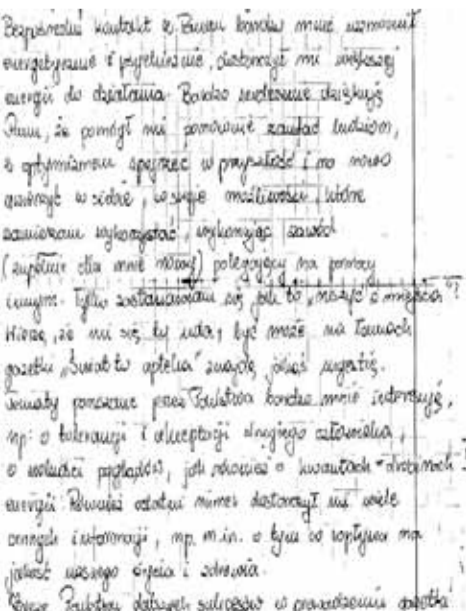 Bezpośredni kontakt z Panem bardzo mnie wzmocnił
energetycznie i psychicznie, dostarczył mi większej
energii do działania. Bardzo serdecznie dziękuję
Panu, że pomógł mi ponownie zaufać ludziom,
z optymizmem spojrzeć w przyszłość i na nowo
uwierzyć w siebie, w swoje możliwości, które
zamierzam wykorzystać, wykonując zawód
(zupełnie dla mnie nowy) polegający na pomocy
innym. Tylko zastanawiam się jak tu "ruszyć z miejsca"?
Wierzę, że mi się tu uda, być może na łamach
gazetki "Świat to apteka" znajdę jakąś sugestię.
Tematy poruszane przez Państwa bardzo mnie interesują,
np: o tolerancji i akceptacji drugiego człowieka,
o wolności poglądów, jak również o kwantach - drobinach
energii. Również ostatni numer dostarczył mi wiele
cennych informacji, np. m.in. o tym co wpływa na
jakość naszego życia i zdrowia.
Życzę Państwu dalszych sukcesów w prowadzeniu